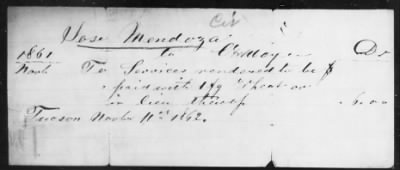 Cit
Jose Mendoza
1861 to Dr
Novbr To Services rendered to be
paid with 1 fg Wheat or
in lieu thereof 6.00
Tucson Novbr 11th 1862.